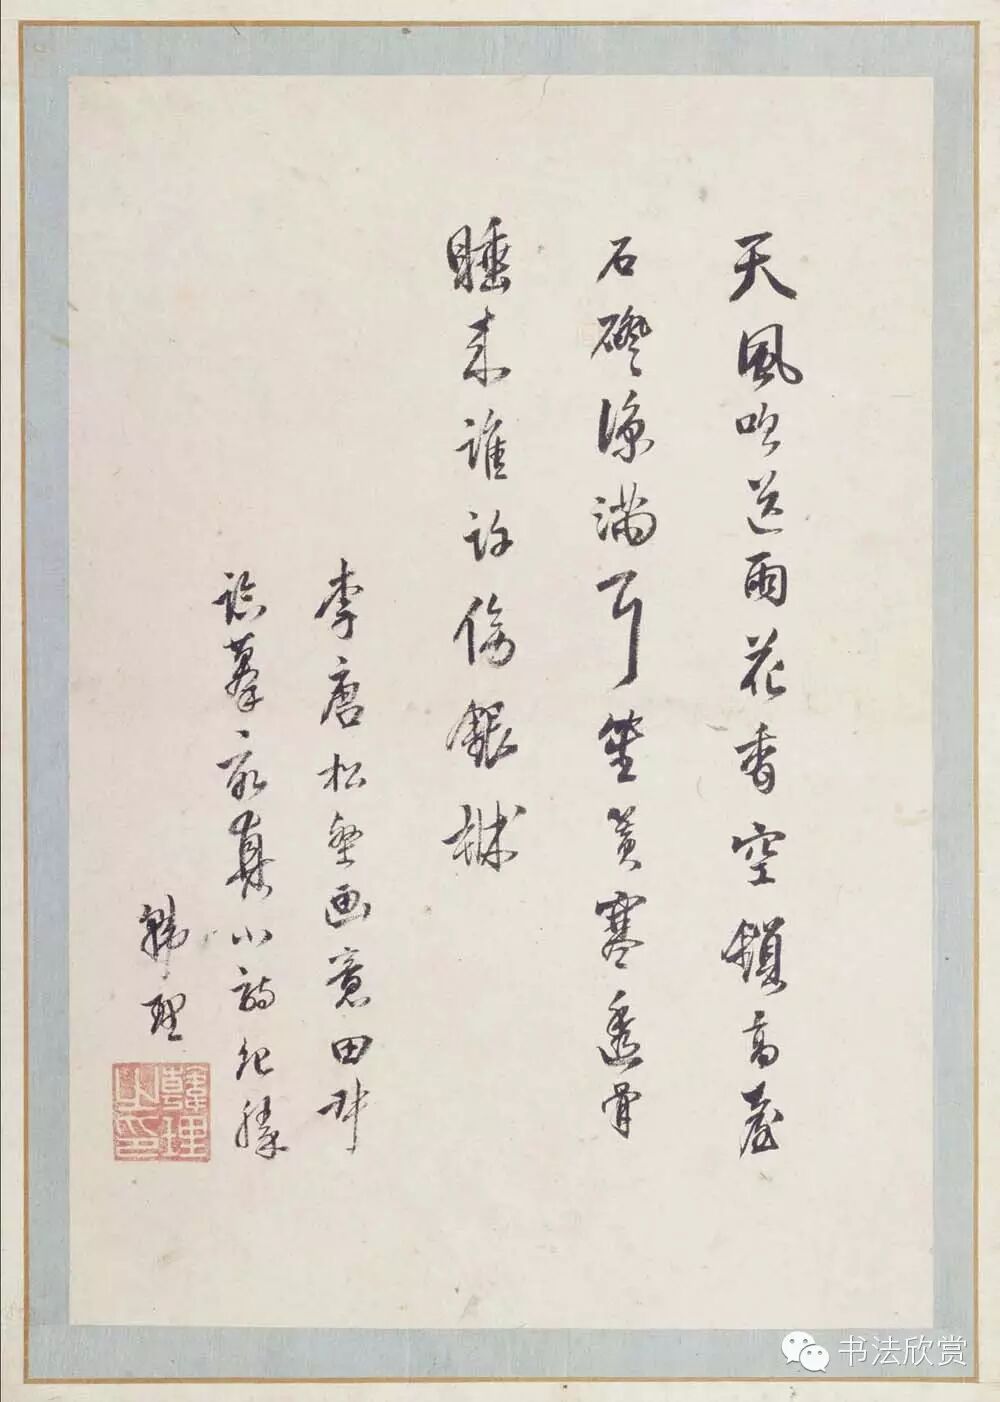 天風吹送雨花香空鎖高臺
石磴涼滿耳笙簧寒透骨
睡來誰許傍銀牀
李唐松壑画意田叔
臨摹真小詩紀勝
韓理
韓理之印
书法欣赏